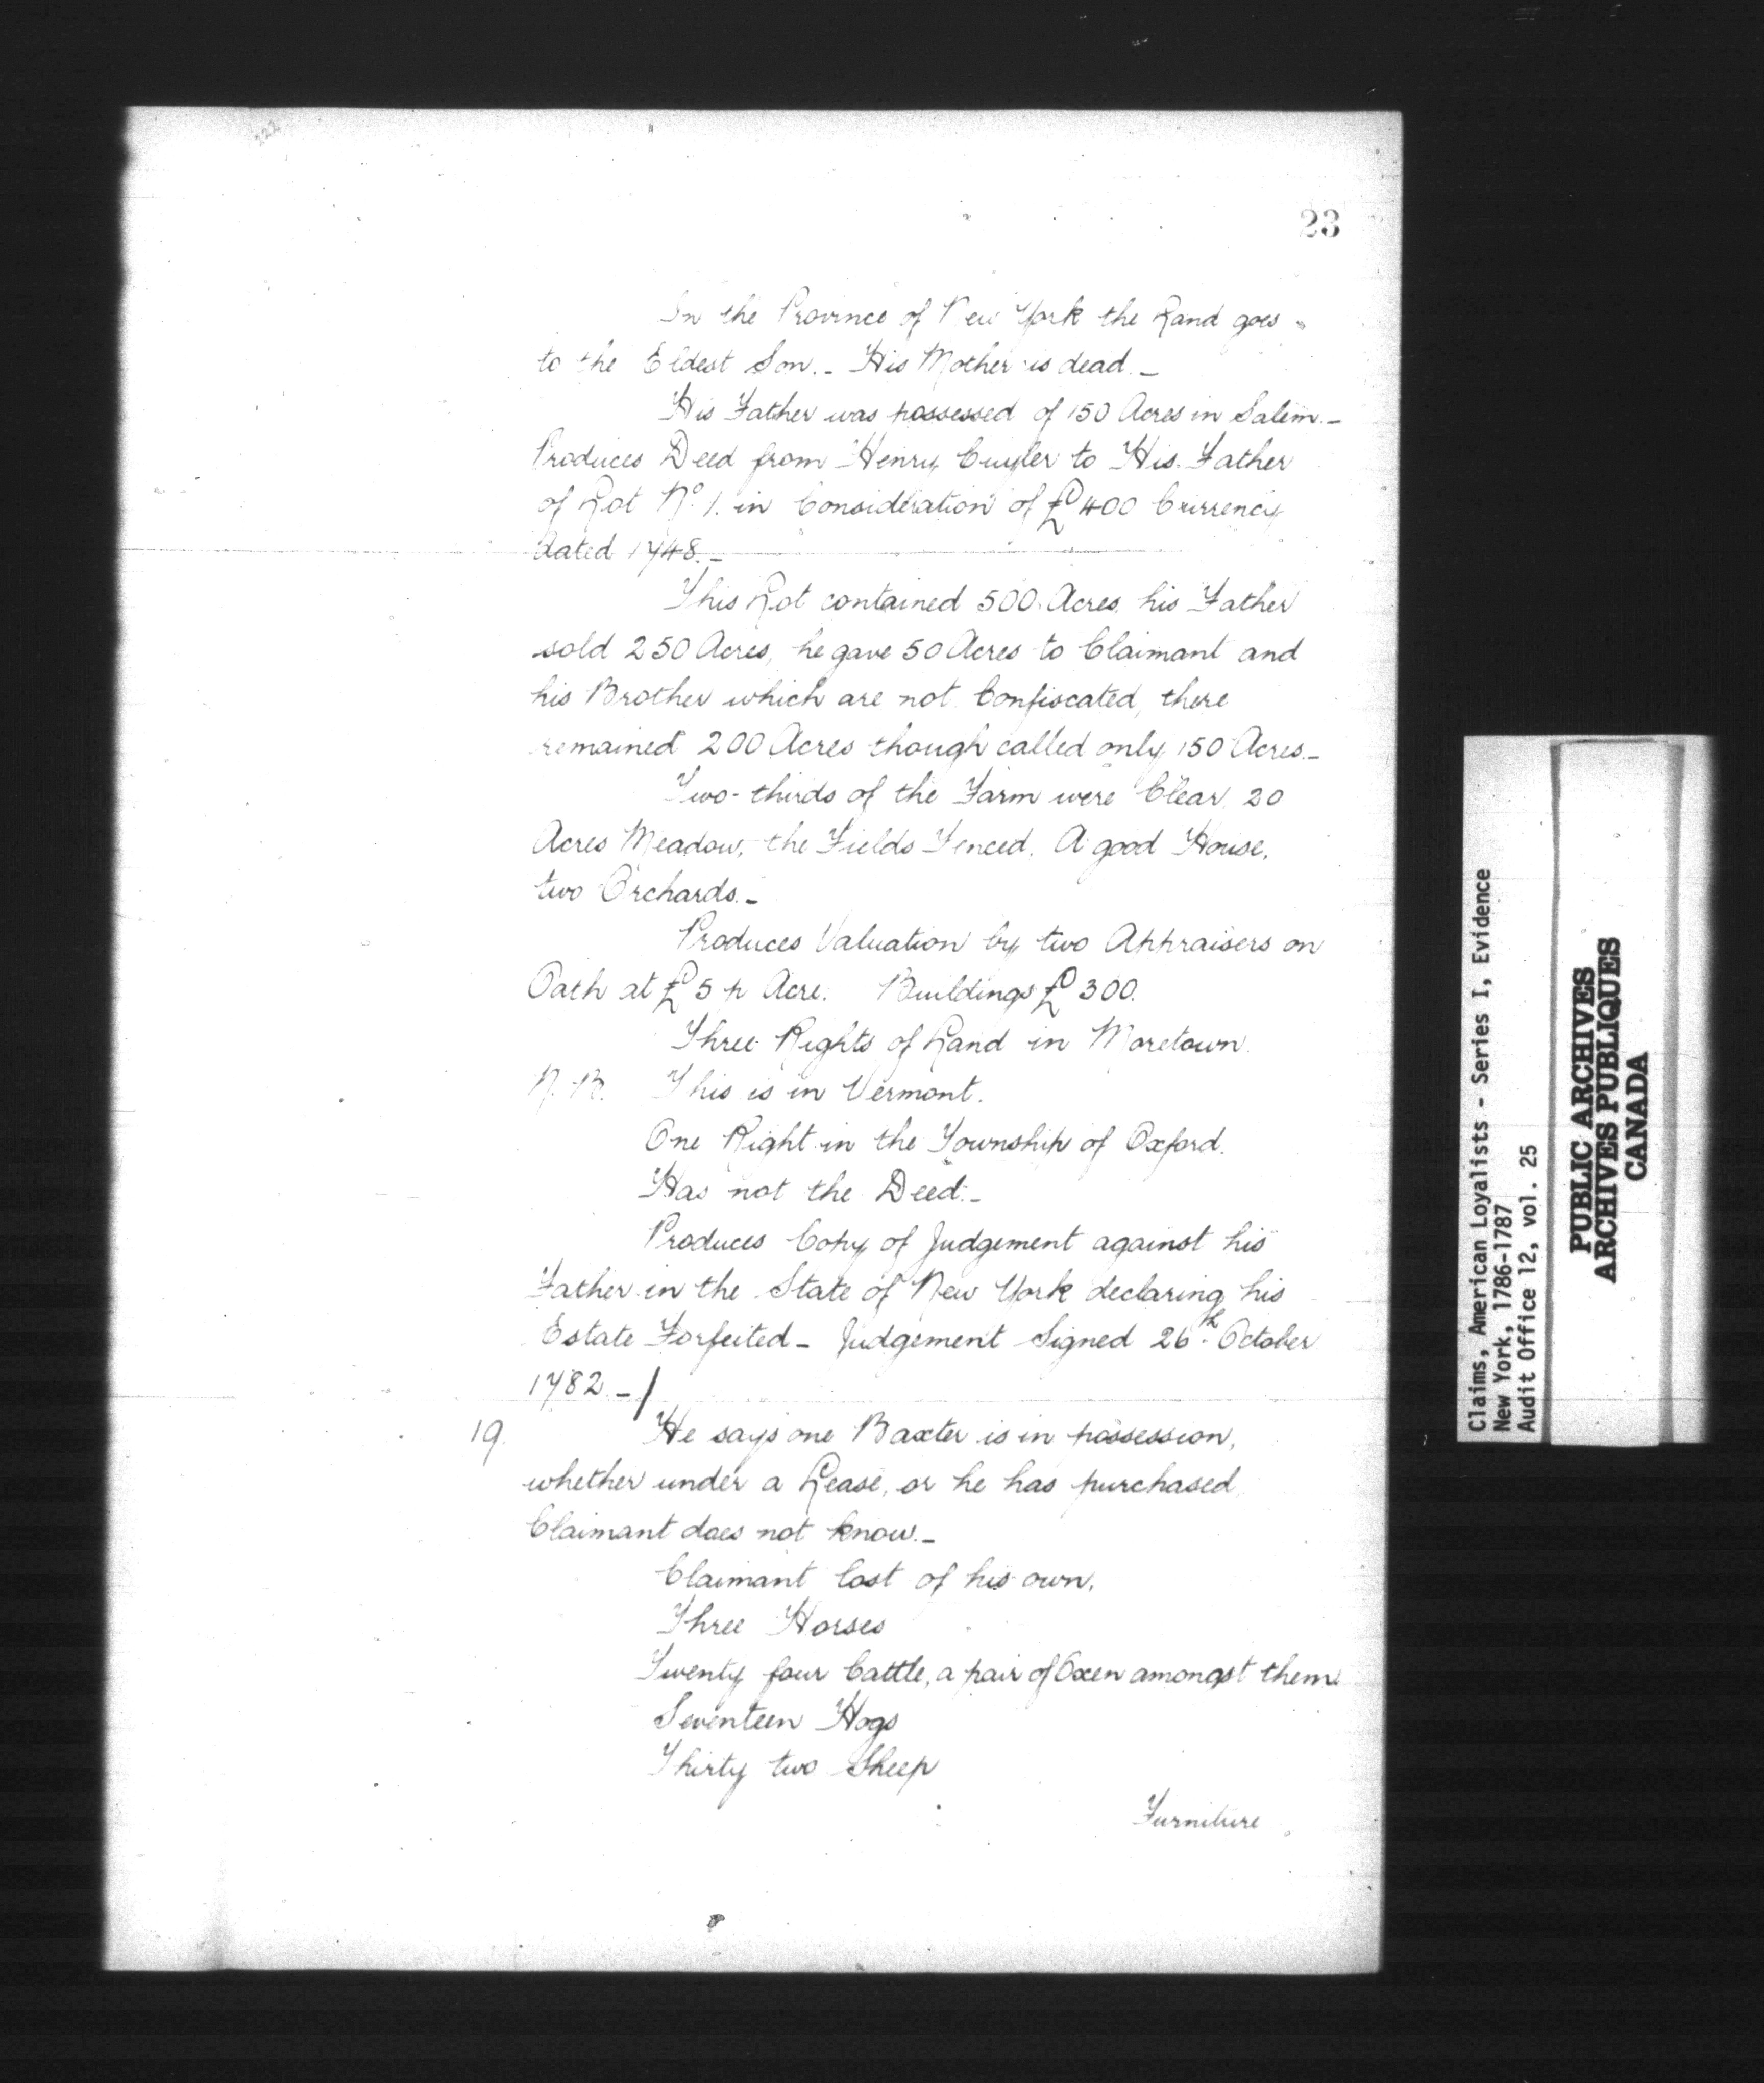 23
In the Province of New York the Land goes
to the Eldest Son. - His Mother is dead. -
His Father was possessed of 150 Acres in Salem. -
Produces Deed from Henry Cuyler to His Father
of Lot No. 1. in Consideration of £400 Currency
dated 1748. -
This Lot contained 500 Acres, his Father
sold 250 Acres, he gave 50 Acres to Claimant and
his Brother which are not Confiscated, there
remained 200 Acres though called only 150 Acres. -
Two-thirds of the Farm were Clear, 20
Acres Meadow, the Fields Fenced. A good House,
two Orchards. -
Produces Valuation by two Appraisers on
Oath at £5 p Acre. Buildings £300.
Three Rights of Land in Moretown.
N.B. This is in Vermont.
One Right in the Township of Oxford.
Has not the Deed. -
Produces Copy of Judgement against his
Father in the State of New York declaring his
Estate Forfeited - Judgement Signed 26th October
1782. - /
19. He says one Baxter is in possession,
whether under a Lease, or he has purchased,
Claimant does not know. -
Claimant lost of his own.
Three Horses
Twenty four Cattle, a pair of Oxen amongst them.
Seventeen Hogs
Thirty two Sheep
Furniture
Claims, American Loyalists - Series I, Evidence
New York, 1786-1787
Audit Office 12, vol. 25
PUBLIC ARCHIVES
ARCHIVES PUBLIQUES
CANADA